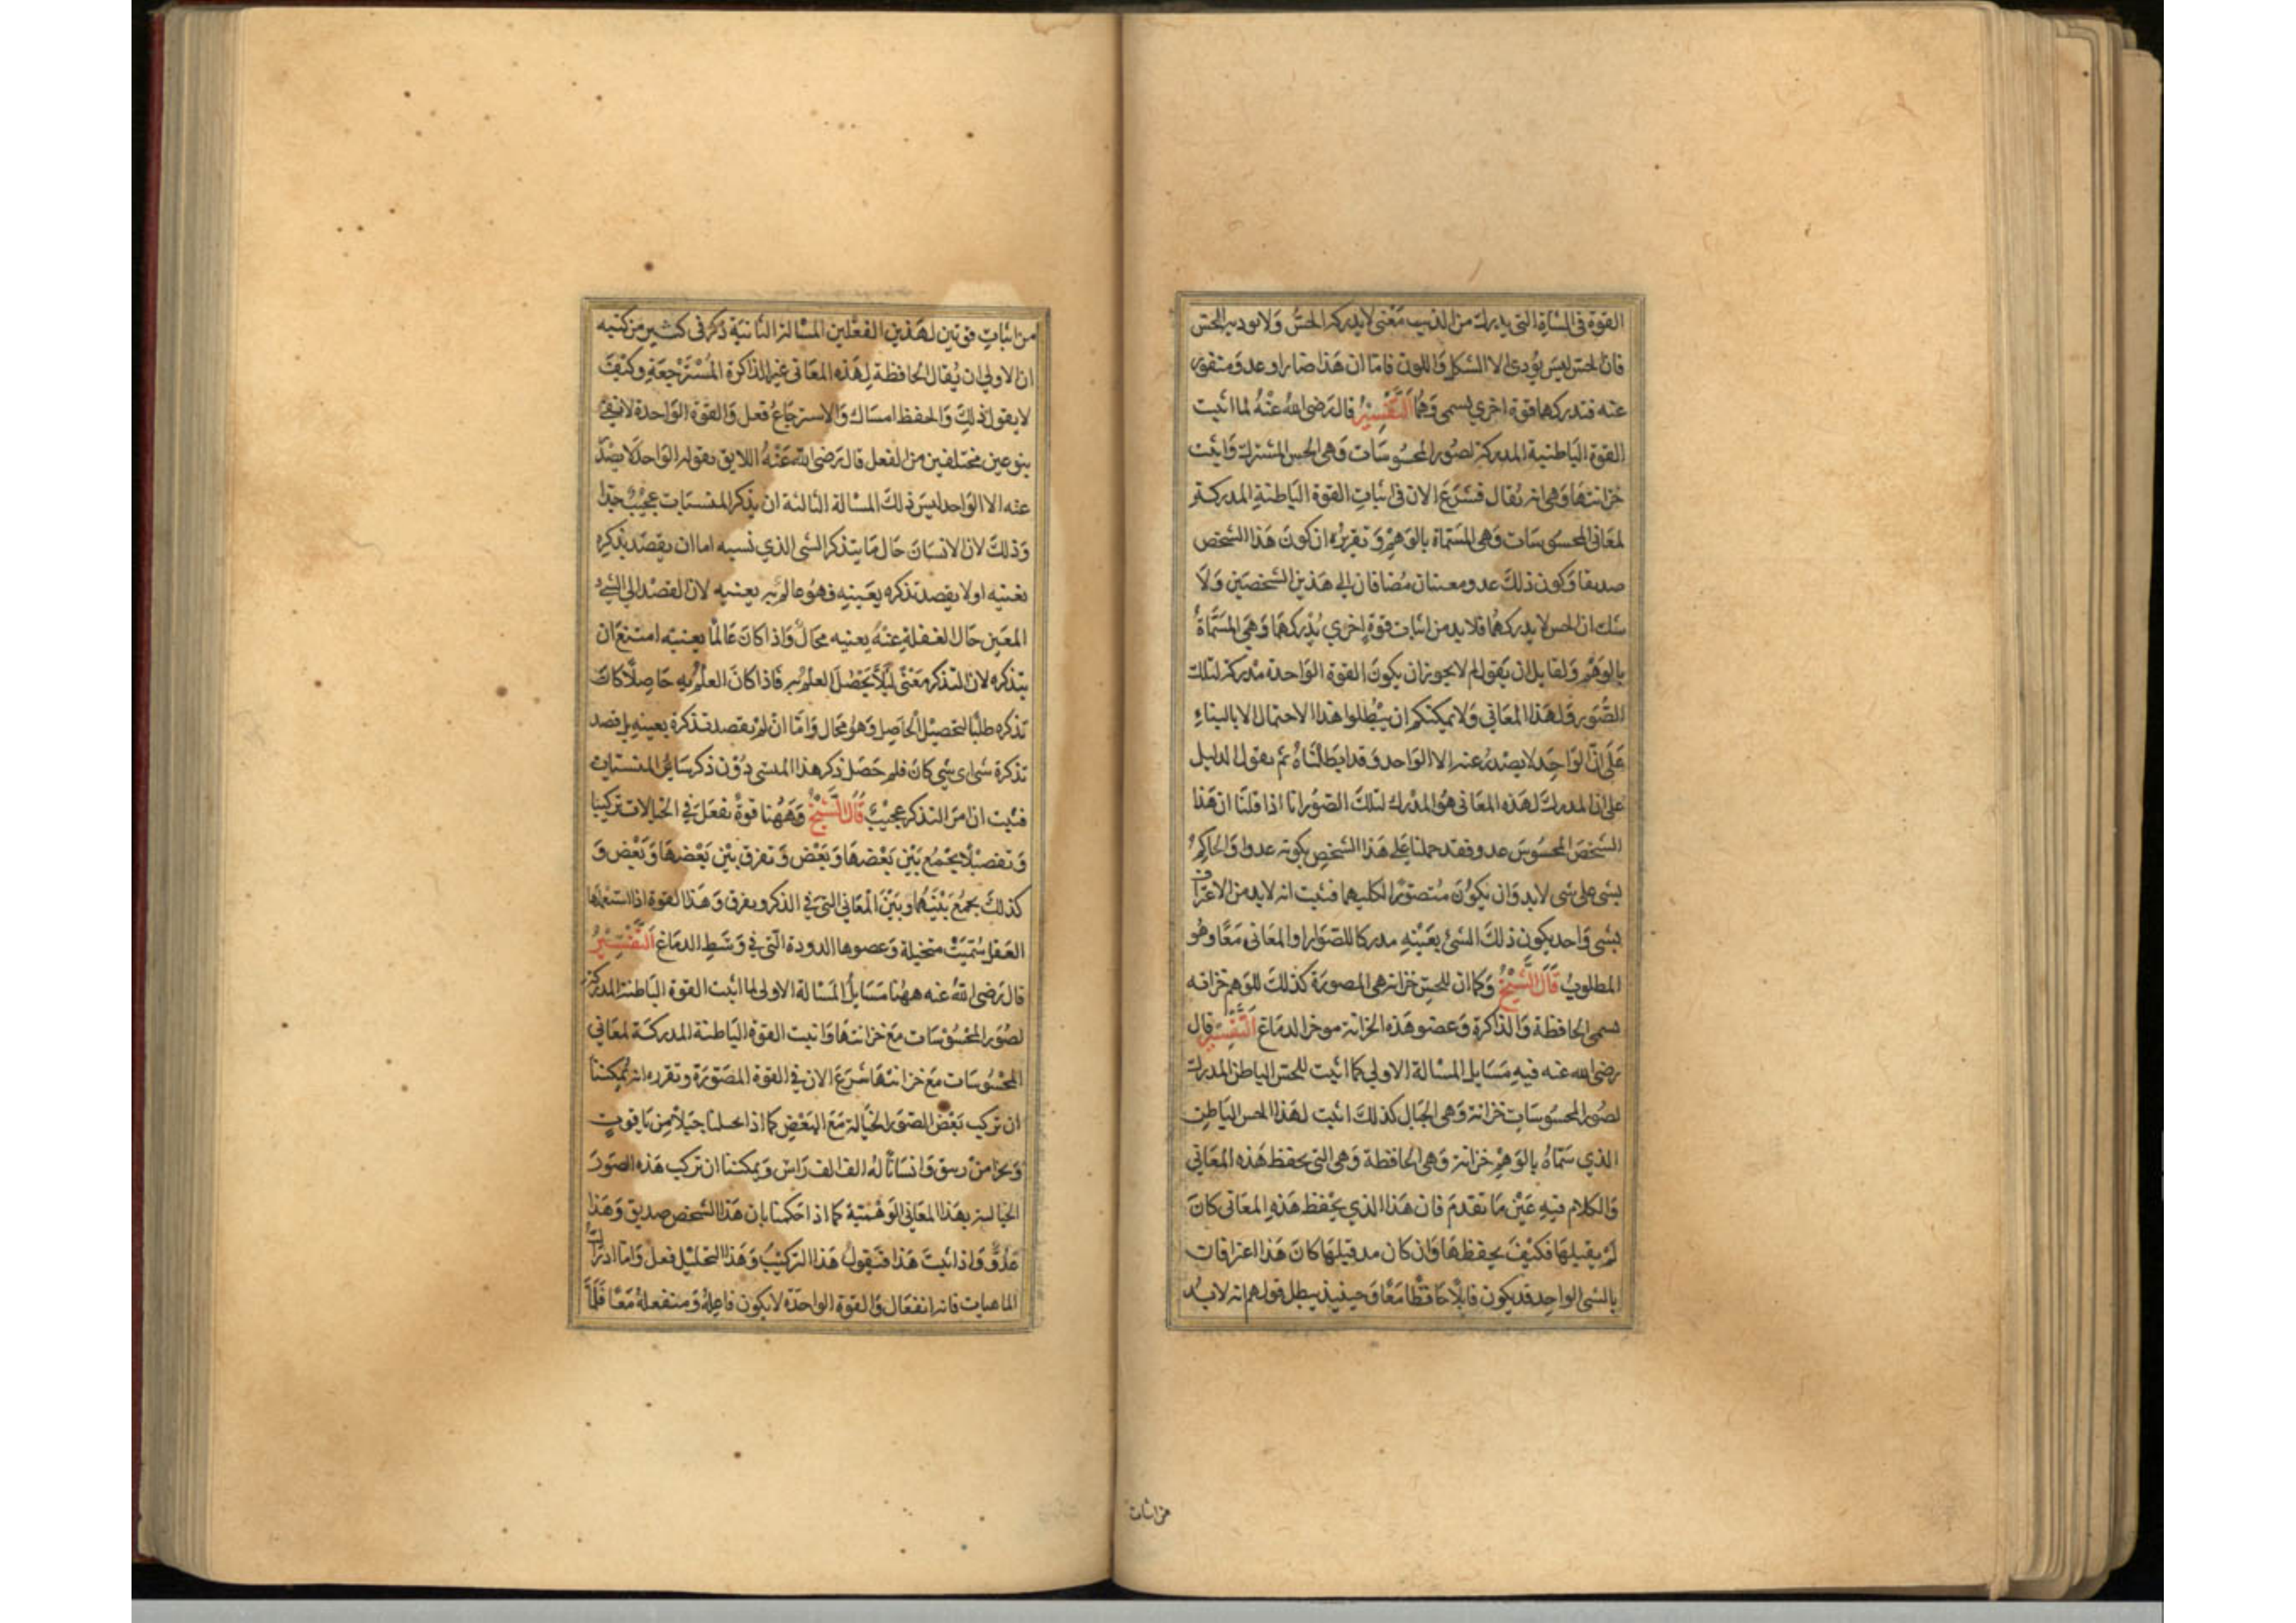 القوة في الشاة التي يدرك من الذيب معنى لا يدركه الحسّ ولا يوديه الحس
فان الحس ليس يؤدي الا الشكل واللون فاما ان هذا ضار او عدو ومنفور
عنه فتدركهما قوة اخري يسمي وهما التفسير قال رضي الله عنه لما اثبت
القوة الباطنية المدركة لصور المحسوسات وهي الحس المشترك واثبت
خزانتها وهي انه يقال فشرع الان في اثبات القوة الباطنة المدركة
لمعاني المحسوسات وهي المسماة بالوهم وتقريره ان كون هذا الشخص
صديقا وكون ذلك عدو معنيان مضافان الي هذين الشخصين ولا
شك ان الحس لا يدركهما فلا بد من اثبات قوة اخري يدركهما وهي المسماة
بالوهم ولقايل ان يقول لم لا يجوز ان يكون القوة الواحدة مدركة لتلك
الصور ولهذا المعاني ولا يمكنكم ان يبطلوا هذا الاحتمال الا بالبناء
على ان الواحد لا يصدر عنه الا الواحد وقد ابطلناه ثم يقول الدليل
على ان المدرك لهذه المعاني هو المدرك لتلك الصور انا اذا قلنا ان هذا
الشخص المحسوس عدو فقد حملنا على هذا الشخص بكونه عدوا والحاكم
بشي على شي لا بد وان يكون متصورا لكليهما فثبت انه لا بد من الاعتراف
بشي واحد يكون ذلك الشئ بعينه مدركا للصور او المعاني معًا وهو
المطلوب قال الشيخ وكما ان للحس خزانة هي المصورة كذلك للوهم خزانه
يسمى الحافظة والذاكرة وعضو هذه الخزانة موخر الدماغ التفسير قال
رضي الله عنه فيه مسايل المسالة الاولي كما اثبت للحس الباطن المدرك
لصور المحسوسات خزانة وهي الخيال كذلك اثبت لهذا الحس الباطن
الذي سمّاه بالوهم خزانة وهي الحافظة وهي التي يحفظ هذه المعاني
والكلام فيه عين ما تقدم فان هذا الذي يحفظ هذه المعاني كان
لم يقبلها فكيف يحفظها وان كان مد قبلها كان هذا اعترافات
بالشي الواحد قد يكون قابلا حافظا معًا وحينيذ يبطل قولهم انه لا بد
من اثبات
من اثبات قوتين لهذين الفعلين المسالة الثانية ذكر في كثير من كتبه
ان الاولي ان يقال الحافظة لهذه المعاني غير الذاكرة المسترجعة وكيف
لا يقول ذلك والحفظ امساك والاسترجاع فعل والقوة الواحدة لا تفي
بنوعين مختلفين من الفعل قال رضي الله عنه اللايق بقوله الواحد لا يصدر
عنه الا الواحد ليس ذلك المسالة الثالثة ان يذكر المنسيات عجيب جدا
وذلك لان الانسان حال ما يتذكر الشي الذي نسيه اما ان يقصد بذكره
بعينه او لا يقصد تذكره بعينه فهو عالم به بعينه لان القصد الي الشي
المعين حال الغفلة عنه بعينه محال واذا كان عالما بعينه امتنع ان
يتذكره لان التذكر معنى لئلا يحصل العلم به فاذا كان العلم به حاصلا كان
تذكره طلبا لتحصيل الحاصل وهو محال واما ان لم يقصد تذكره بعينه بل قصد
تذكرة شي اي شي كان فلم حصل ذكر هذا المنسي دون ذكر ساير المنسيات
فثبت ان امر التذكر عجيب قال الشيخ وههنا قوة يفعل في الخيالات تركيبا
وتفصيلا يجمع بين بعضها وبعض وتفرق بين بعضها وبعض و
كذلك يجمع بينهما وبين المعاني التي في الذكر ويفرق وهذا القوة اذا استعملها
العقل سُمّيت متخيلة وعضوها الدودة التي في وسط الدماغ التفسير
قال رضي الله عنه ههنا مسايل المسالة الاولي لما اثبت القوة الباطنة المدركة
لصور المحسوسات مع خزانتها واثبت القوة الباطنة المدركة لمعاني
المحسوسات مع خزانتها شرع الان في القوة المصورة وتقرره انه يمكننا
ان تركيب بعض الصور الخيالة مع البعض كما اذا تخيلنا جبلا من ياقوت
وبحرا من زيبق وانسانا له الف الف راس ويمكننا ان تركب هذه الصور
الخيالية بهذا المعاني الوهمية كما اذا حكمنا بان هذا الشخص صديق وهذا
عدو واذا ثبت هذا فنقول هذا التركيب وهذا التحليل فعل واما ادراك
الماهيات فانه انفعال والقوة الواحدة لا يكون فاعلة ومنفعلة معا فلما